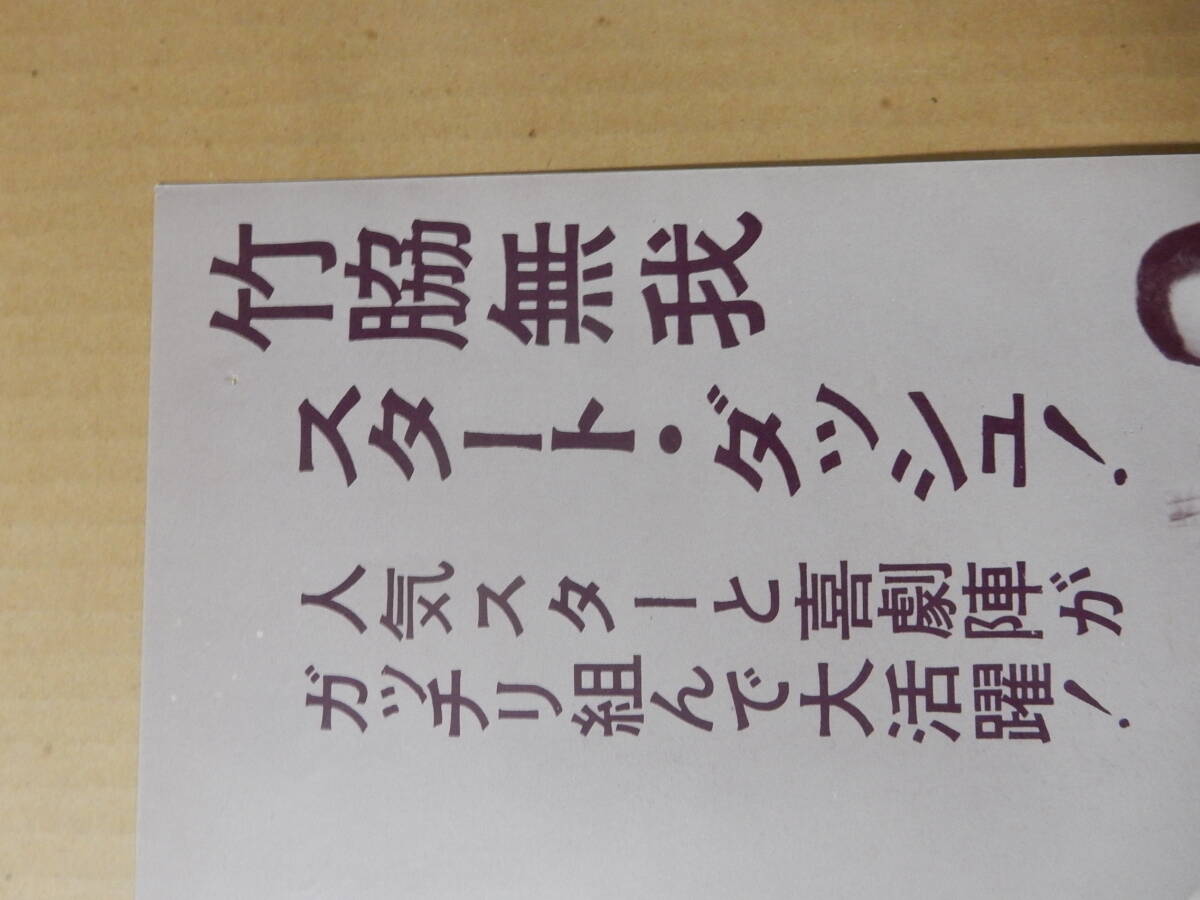 竹脇無我
スタート・ダッシュ!
人気スターと喜劇陣が
ガッチリ組んで大活躍!